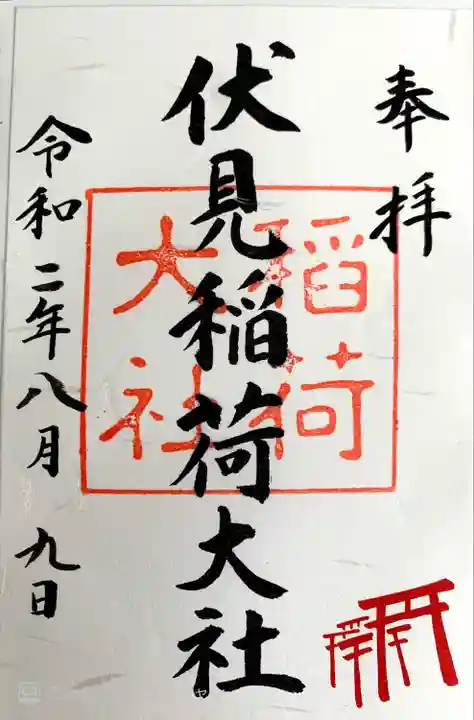 奉拝
伏見稲荷大社
稲荷
大社
令和二年八月九日